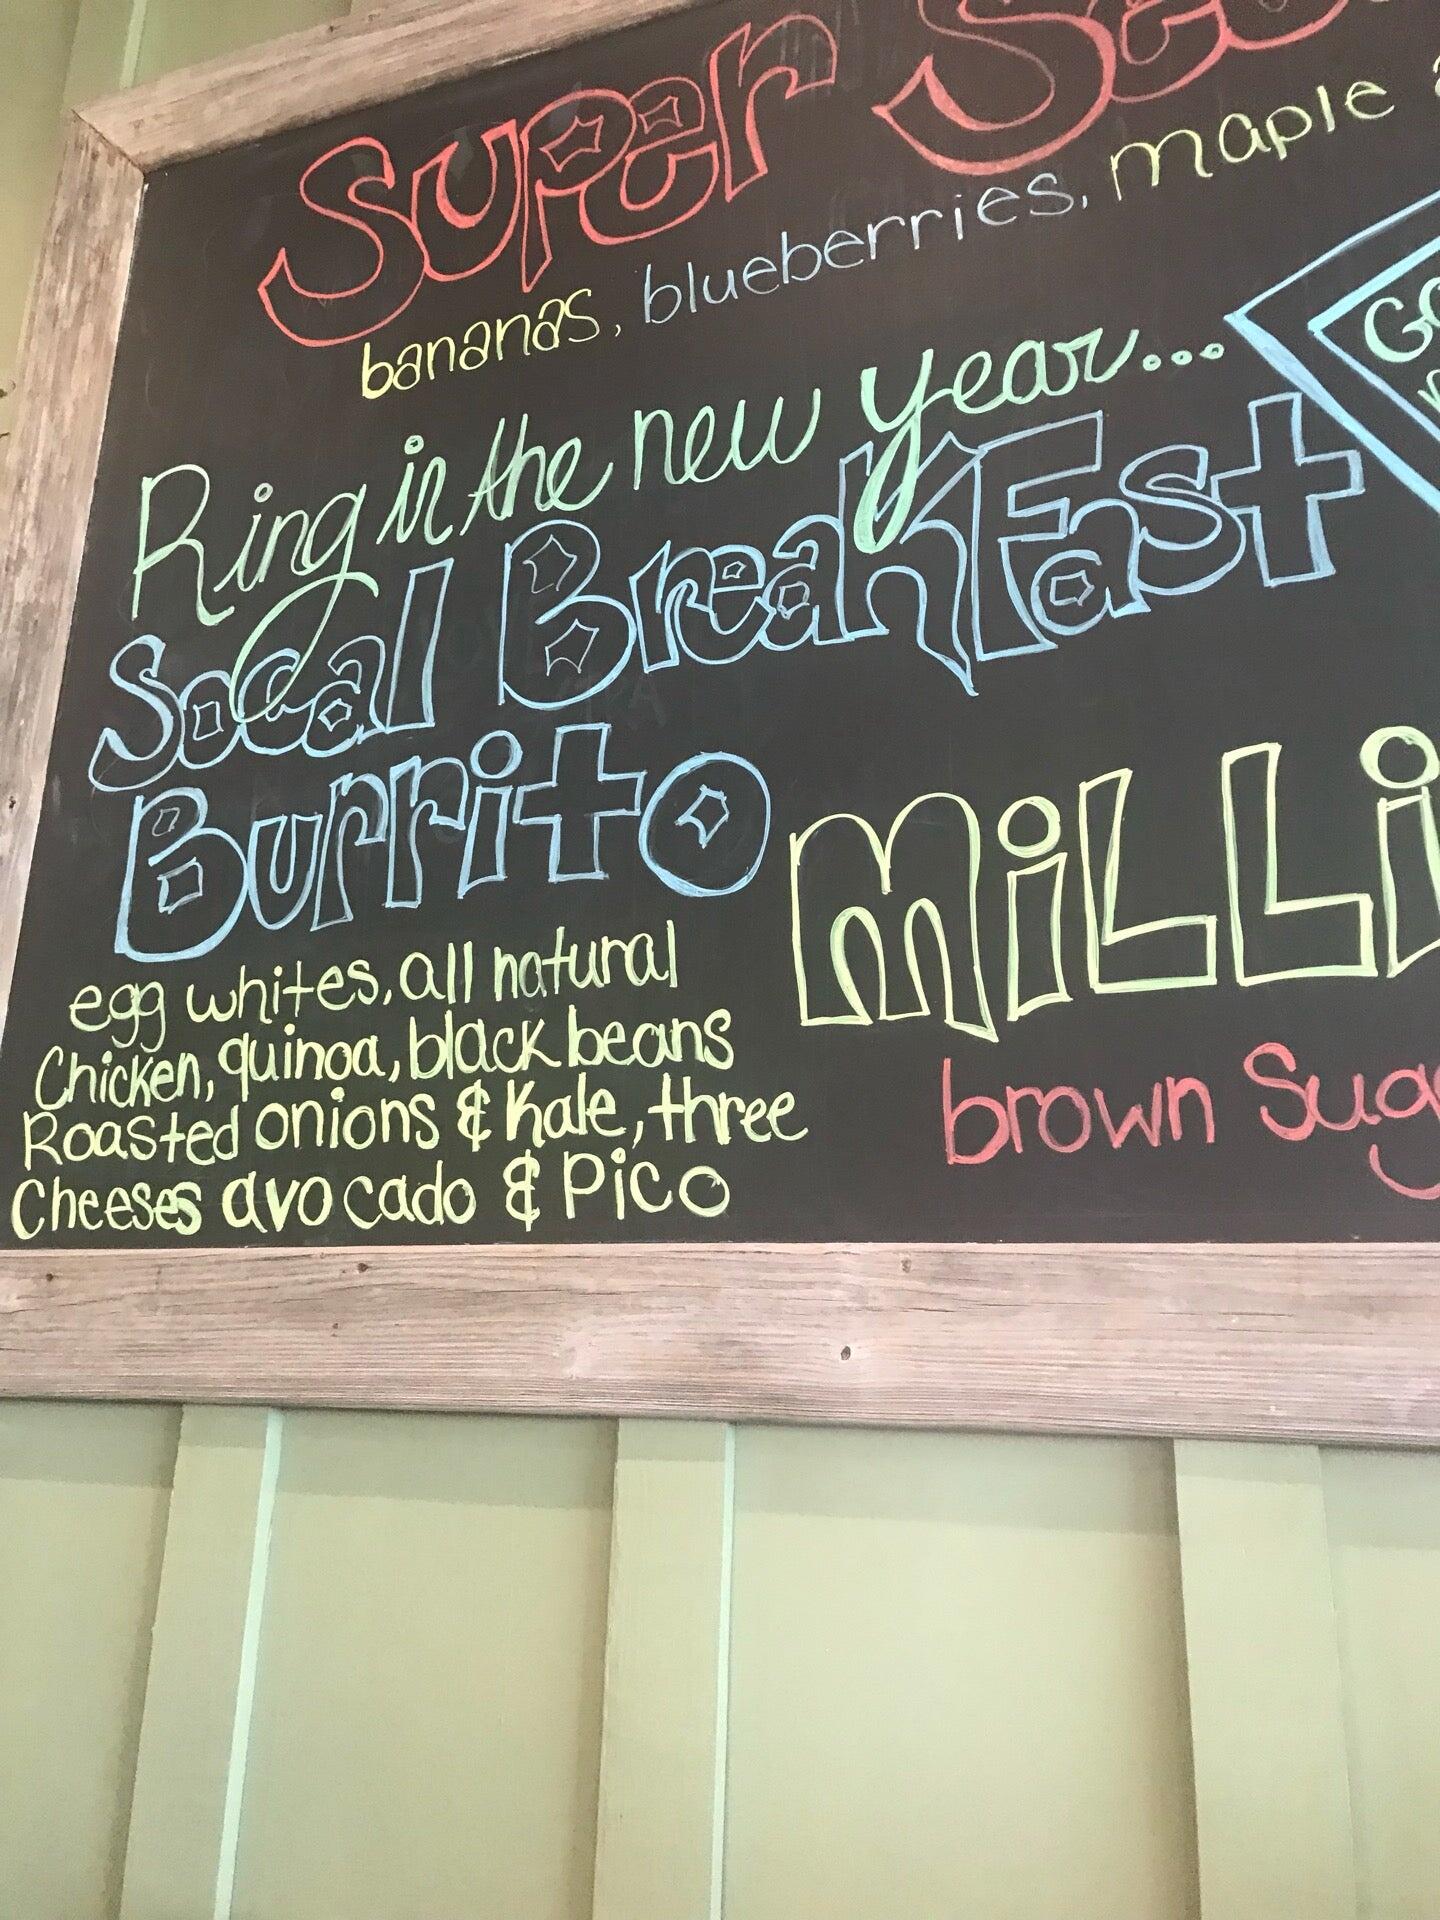 Super
bananas, blueberries, maple
Ring in the new year...
Socal BreakFast
Burrito
egg whites, all natural
Chicken, quinoa, black beans
Roasted onions & Kale, three
Cheeses avocado & Pico
MiLLi
brown Sug